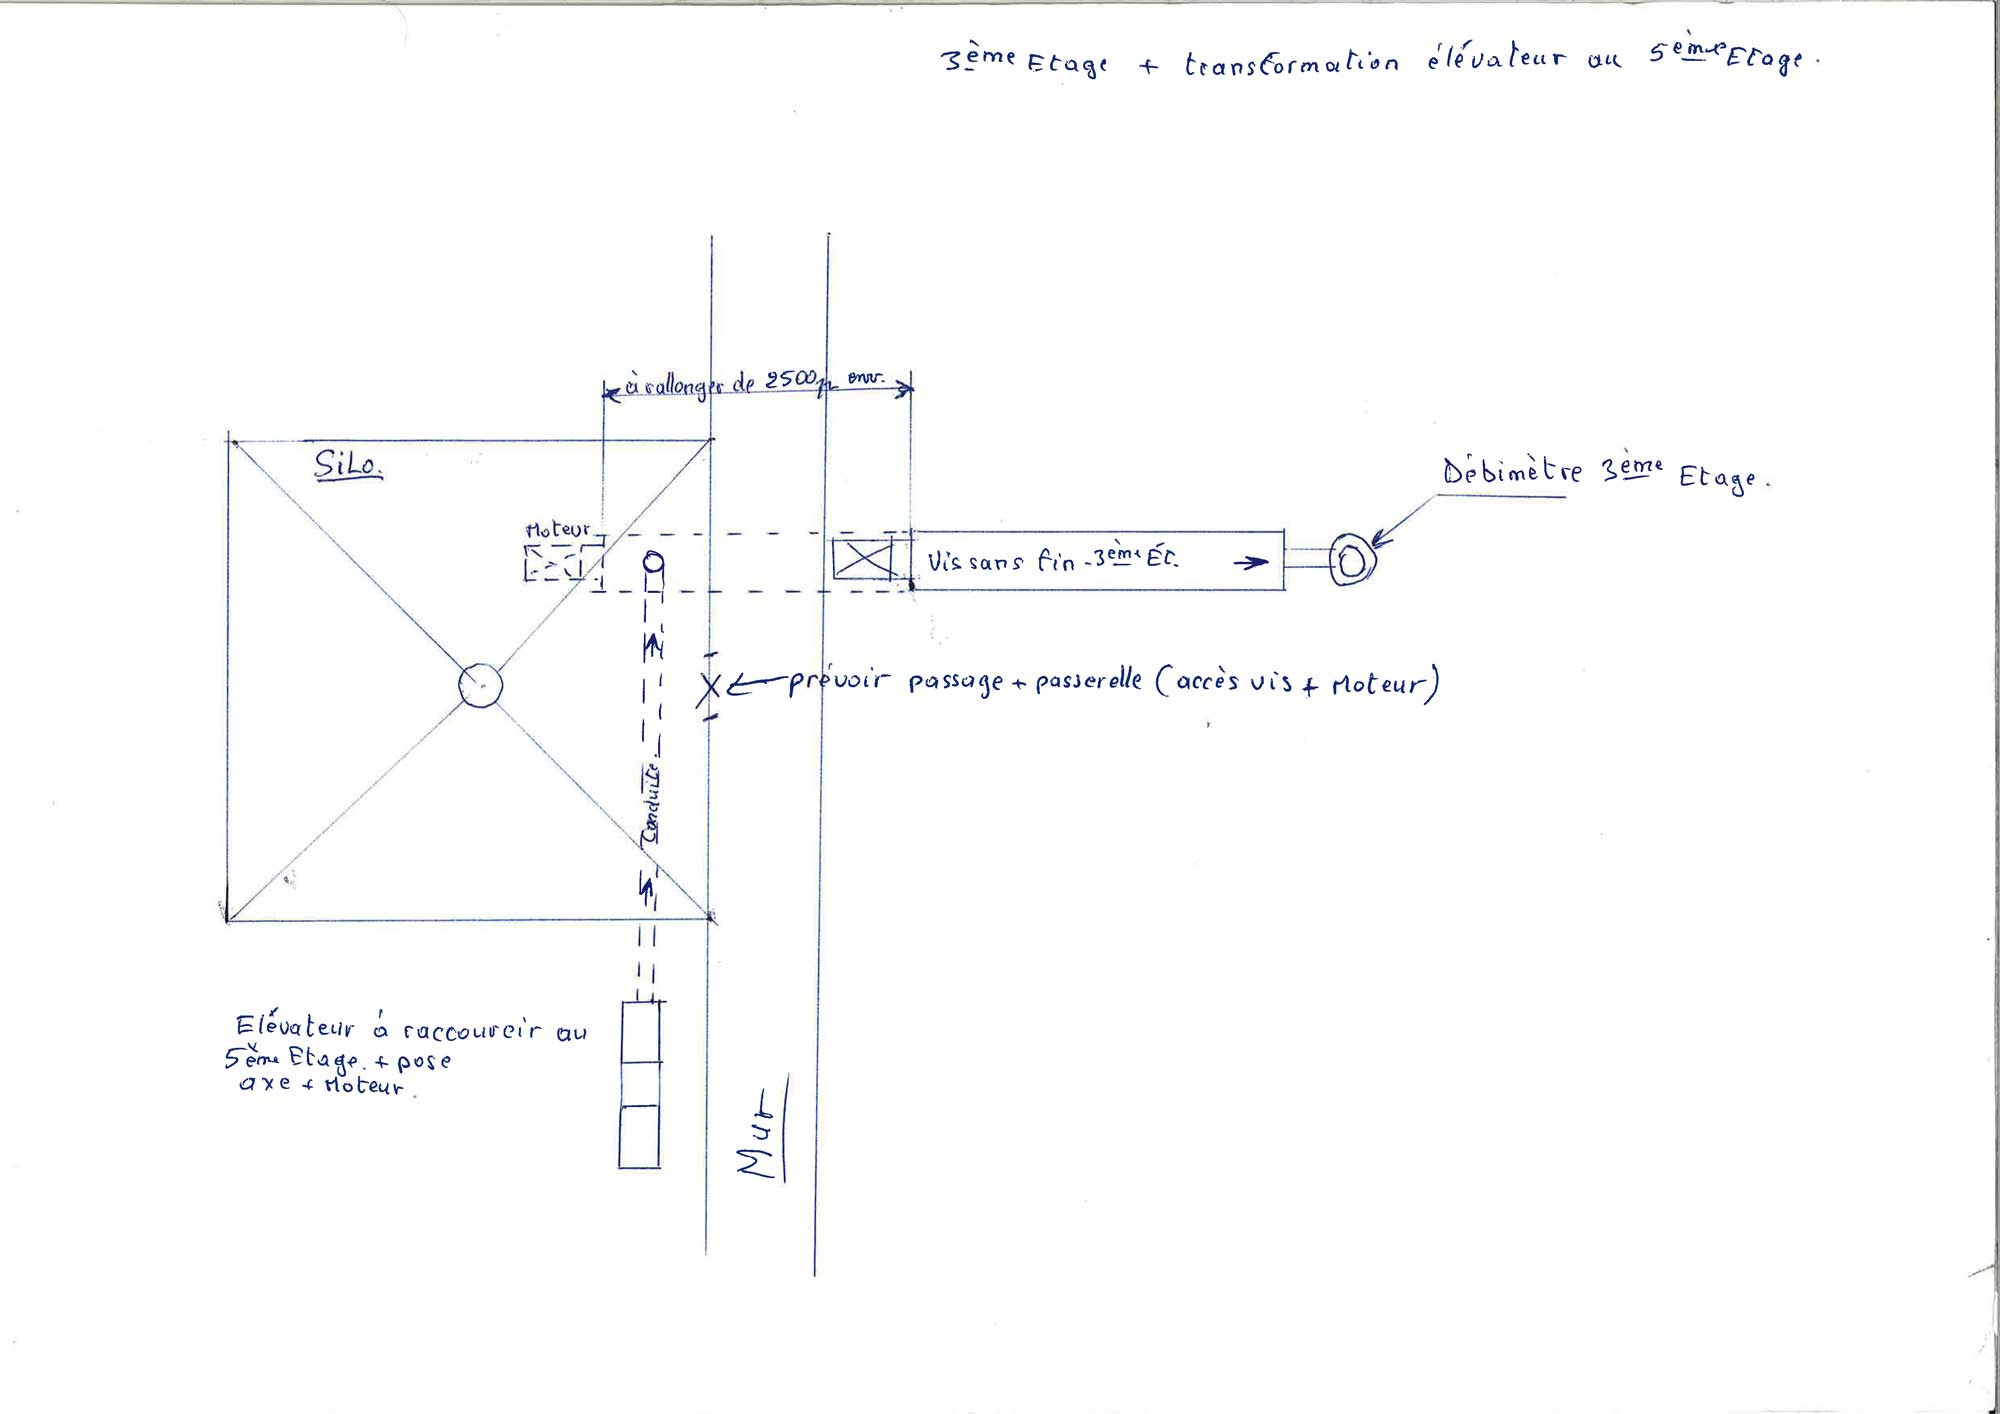 3ème Etage + transformation élévateur au 5ème Etage.
à rallonger de 2500 env.
SiLo.
Débimètre 3ème Etage.
Moteur
Vis sans fin - 3ème Ét.
prévoir passage + passerelle (accès vis + Moteur)
Conduite
Elévateur à raccourcir au
5ème Etage. + pose
axe + Moteur.
Mur